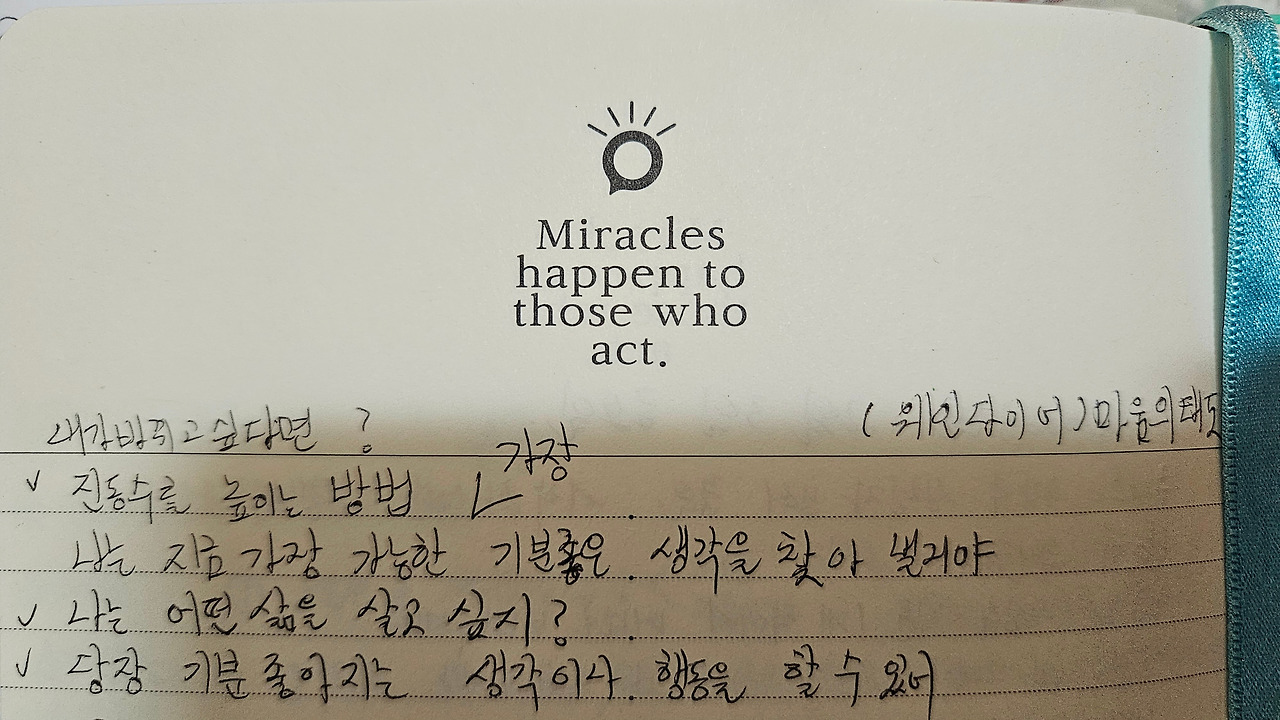 Miracles
happen to
those who
act.
싶다면 ?
( 웨인다이어 ) 마음의태도
가장
✓ 진동수를 높이는 방법
나는 지금 가장 가능한 기분좋은 생각을 찾아 낼거야
✓ 나는 어떤 삶을 살고 싶지 ?
✓ 당장 기분좋아지는 생각이나 행동을 할 수 있어